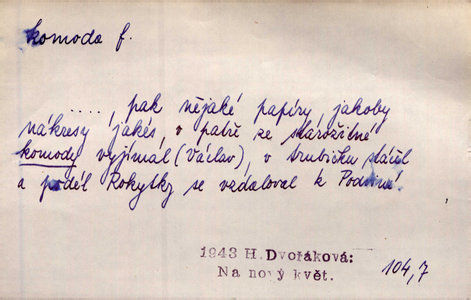 komoda f.
....., pak nějaké papíry, jakoby
nákresy jakés, v patře ze starožitné
komody vyjímal (Václav), v trubičku stáčel
a podél Rokytky se vzdaloval k Podvinné
1943 H. Dvořáková:
Na nový květ.
104,7